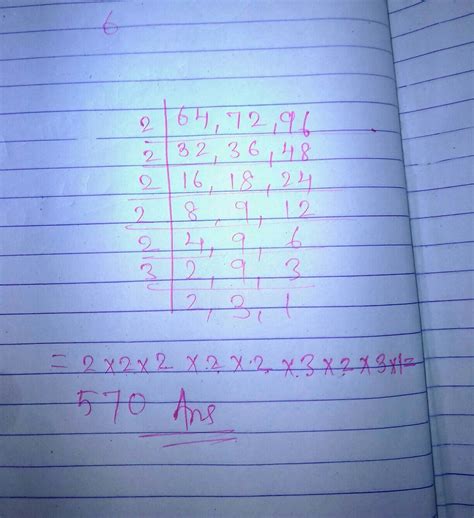 6
2 | 64, 72, 96
2 | 32, 36, 48
2 | 16, 18, 24
2 | 8, 9, 12
2 | 4, 9, 6
3 | 2, 9, 3
| 2, 3, 1
= 2 x 2 x 2 x 2 x 2 x 3 x 2 x 3 x 1 =
570 Ans